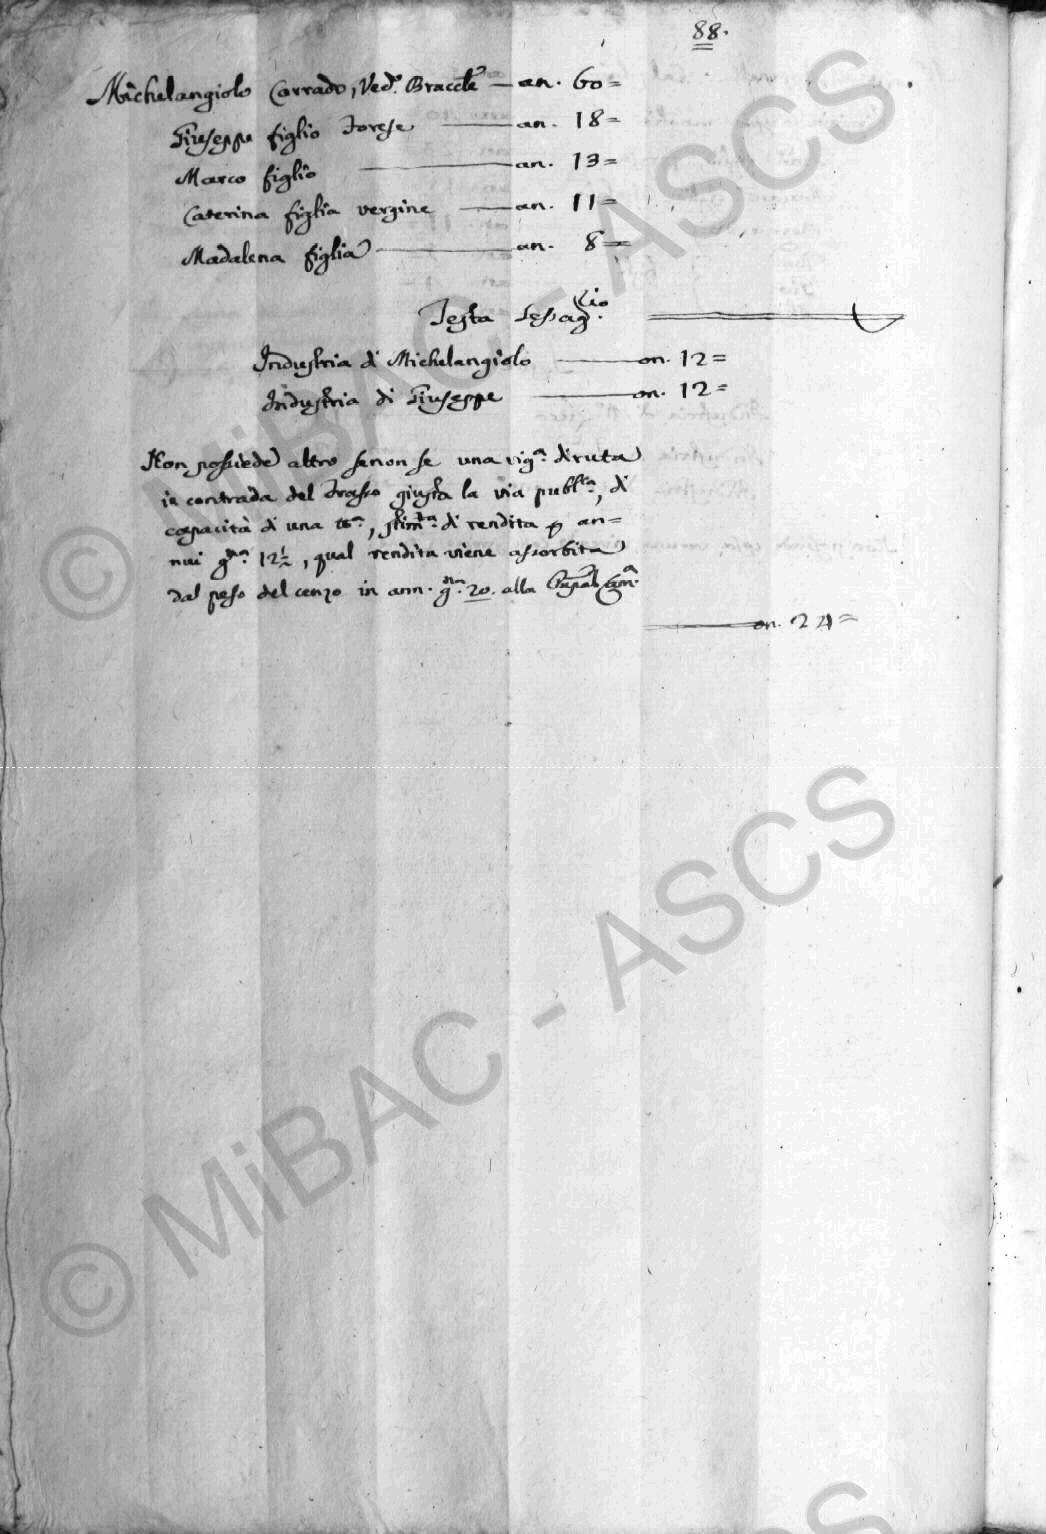 88.
Michelangiolo Corrado, Ved.º Braccle — an. 60=
Giuseppe figlio Forese — an. 18=
Marco figlio — an. 13=
Caterina figlia vergine — an. 11=
Madalena figlia — an. 8=
Testa Sessag.rio
Industria di Michelangiolo — on. 12=
Industria di Giuseppe — on. 12=
Non possiede altro senon se una vig.a diruta
in contrada del giusta la via publ.ca, di
capacità di una , stim.ta di rendita p an=
nui g.na 12½, qual rendita viene assorbita
dal peso del cenzo in ann. g.na 20. alla
on. 24=
© MiBAC - ASCS
© MiBAC - ASCS